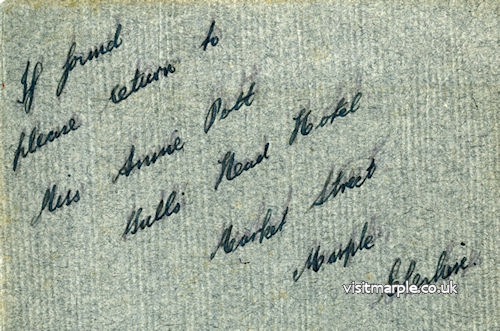 If found
please return to
Miss Annie Pott
Bulls Head Hotel
Market Street
Marple
Cheshire.
visitmarple.co.uk